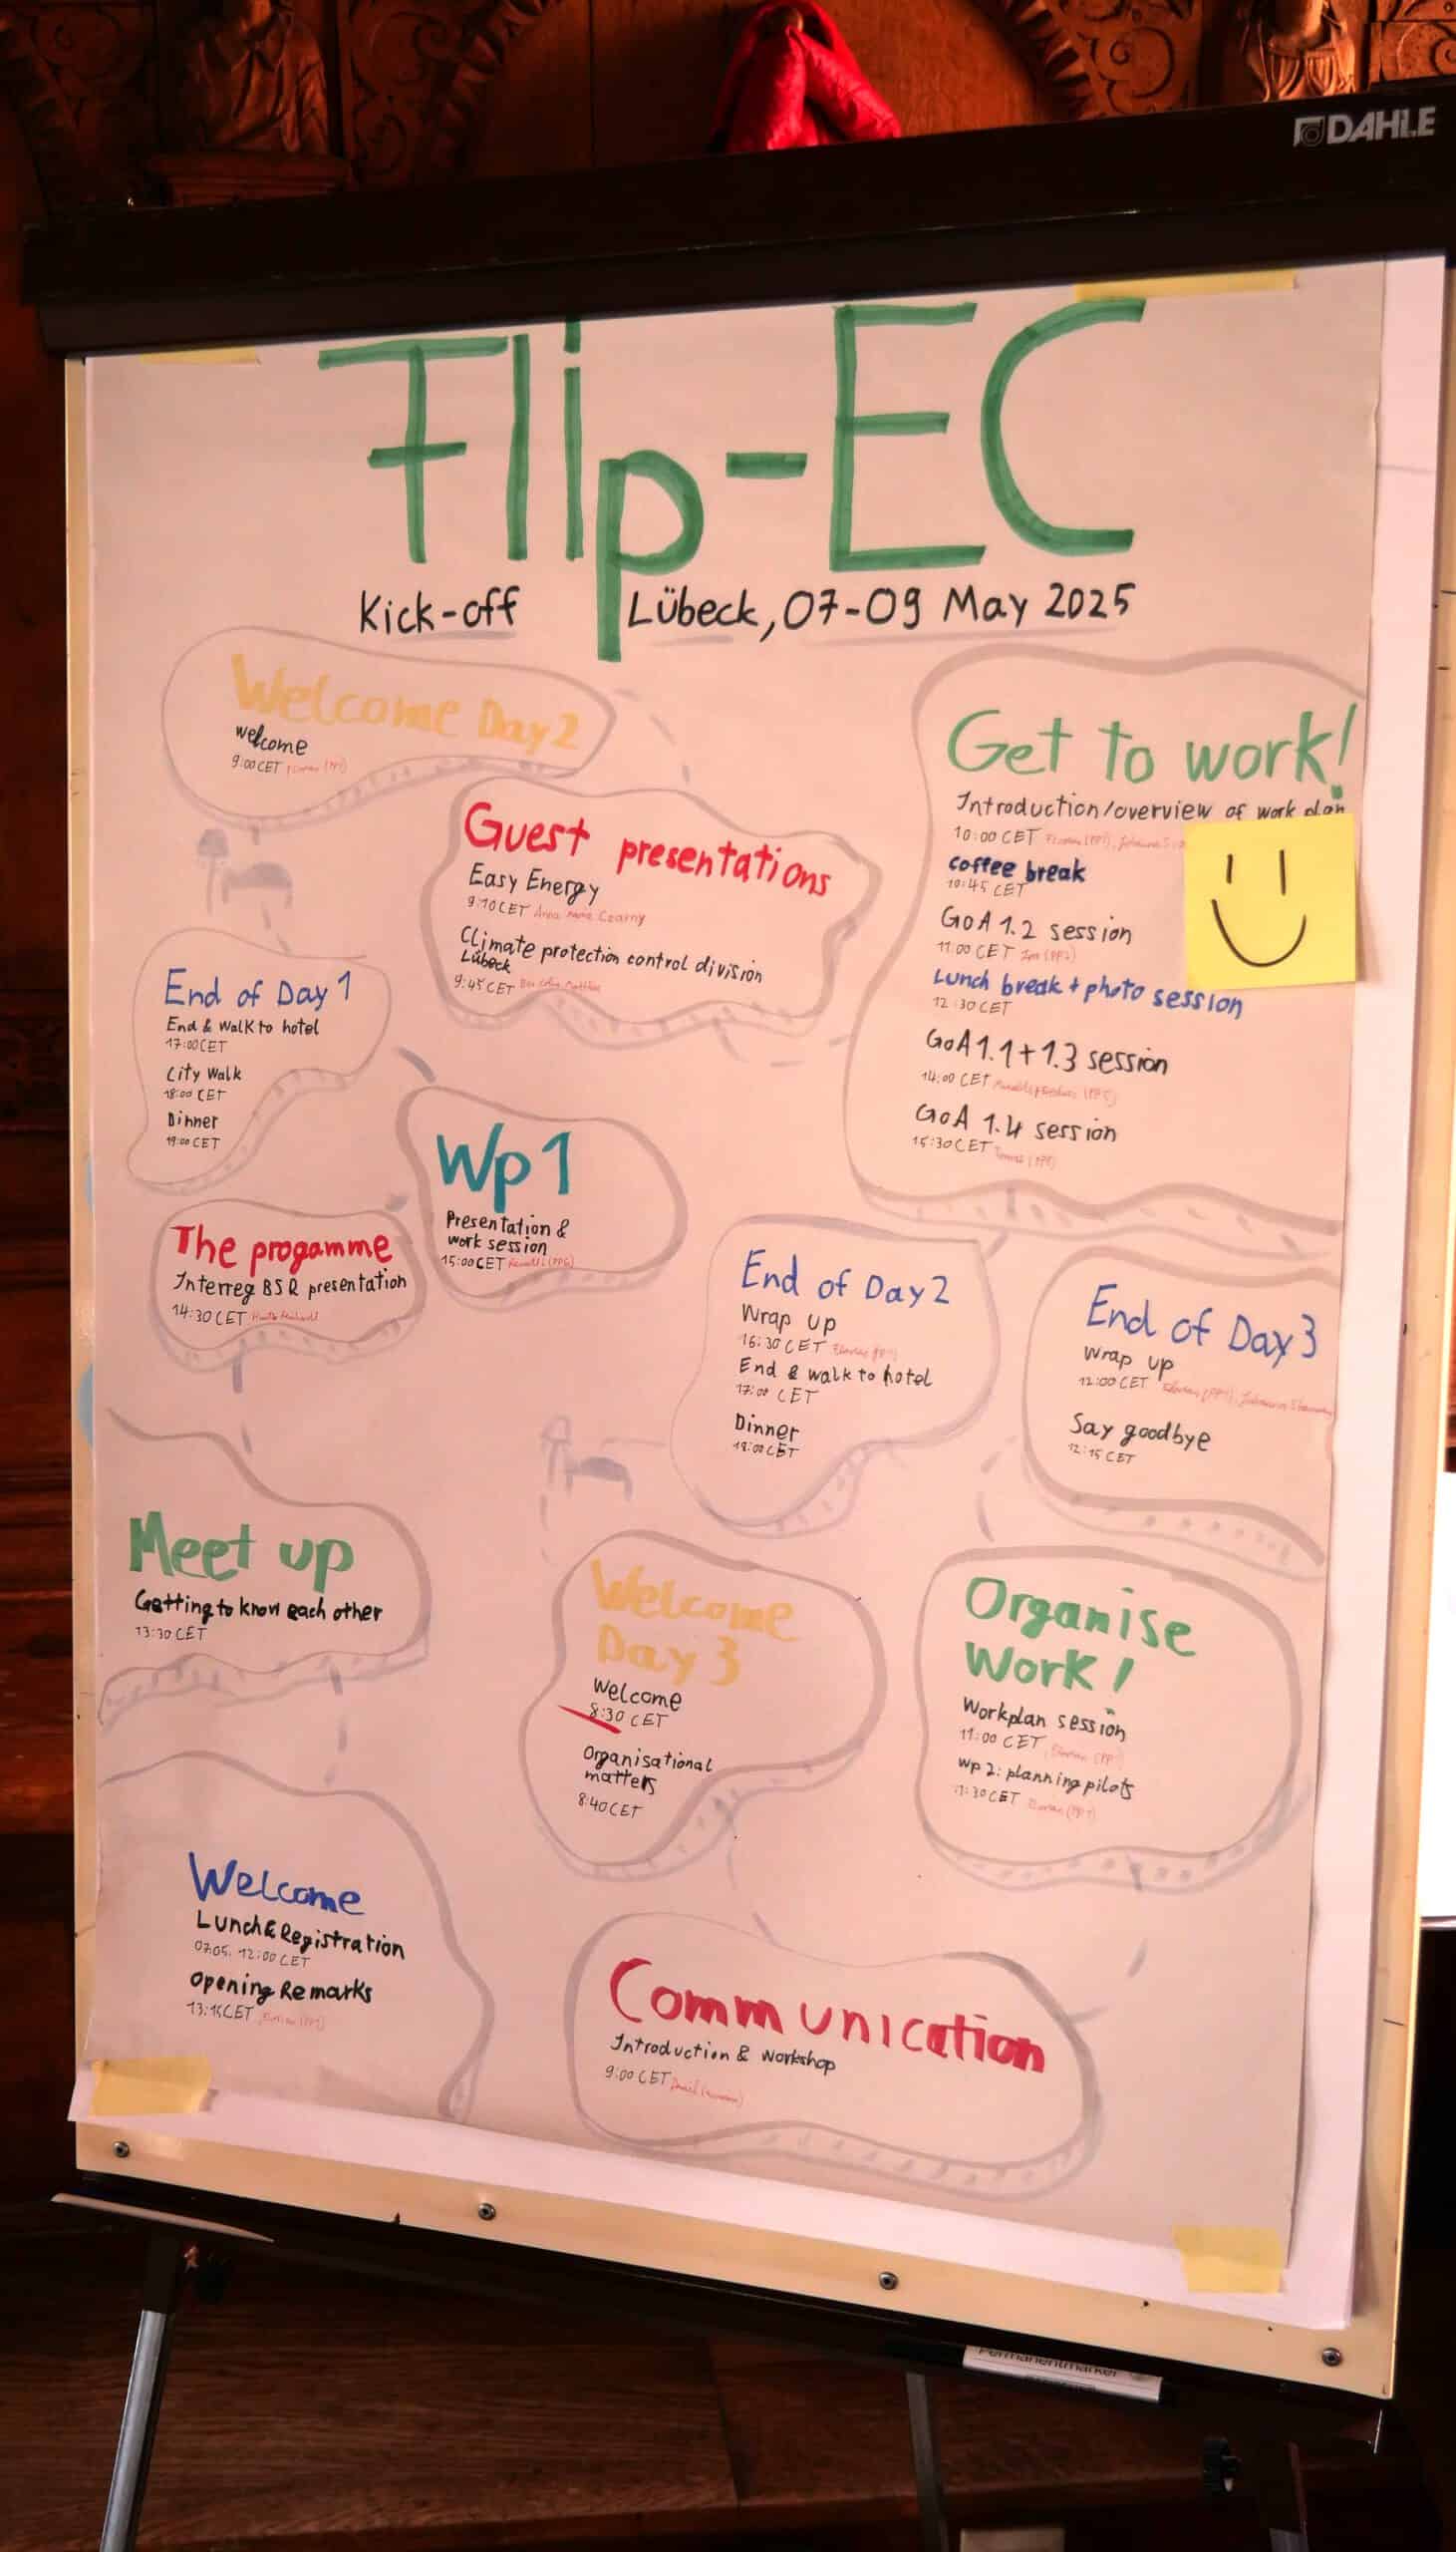 DAHLE
Flip-EC
Kick-off Lübeck, 07-09 May 2025
Welcome Day 2
welcome
9:00 CET
Guest presentations
Easy Energy
9:10 CET Anna Marie Czarny
Climate protection control division
Lübeck
9:45 CET
Get to work!
Introduction/overview of work plan
10:00 CET
coffee break
10:45 CET
GoA 1.2 session
11:00 CET
Lunch break + photo session
12:30 CET
GoA 1.1 + 1.3 session
14:00 CET
GoA 1.4 session
15:30 CET
End of Day 1
End & walk to hotel
17:00 CET
City Walk
18:00 CET
Dinner
19:00 CET
Wp 1
Presentation &
work session
15:00 CET
The progamme
Interreg BSR presentation
14:30 CET
End of Day 2
Wrap up
16:30 CET
End & walk to hotel
17:00 CET
Dinner
CET
End of Day 3
Wrap up
12:00 CET
Say goodbye
12:15 CET
Meet up
Getting to know each other
13:30 CET
Welcome
Day 3
Welcome
8:30 CET
Organisational
matters
8:40 CET
Organise
Work!
Workplan session
11:00 CET
Wp 2: planning pilots
11:30 CET
Welcome
Lunch & Registration
07.05. 12:00 CET
Opening Remarks
13:15 CET
Communication
Introduction & Workshop
9:00 CET
Permanentmarker